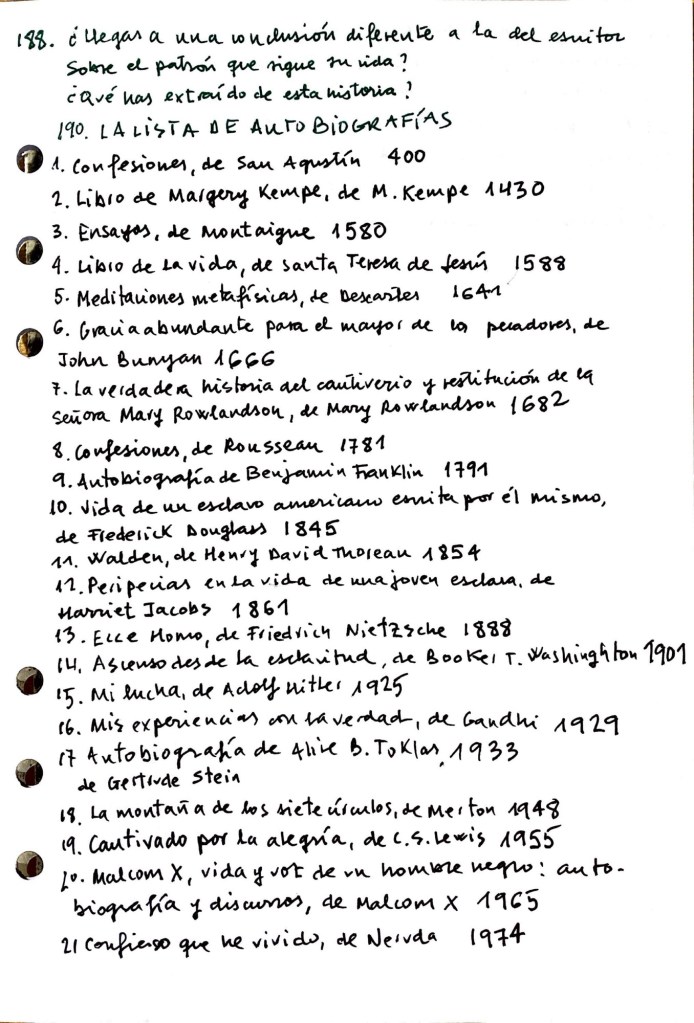 188. ¿Llegas a una conclusión diferente a la del escritor
sobre el patrón que sigue su vida?
¿Qué has extraído de esta historia?
190. LA LISTA DE AUTOBIOGRAFÍAS
1. Confesiones, de San Agustín 400
2. Libro de Margery Kempe, de M. Kempe 1430
3. Ensayos, de Montaigne 1580
4. Libro de la vida, de santa Teresa de Jesús 1588
5. Meditaciones metafísicas, de Descartes 1641
6. Gracia abundante para el mayor de los pecadores, de
John Bunyan 1666
7. La verdadera historia del cautiverio y restitución de la
señora Mary Rowlandson, de Mary Rowlandson 1682
8. Confesiones, de Rousseau 1781
9. Autobiografía de Benjamin Franklin 1791
10. Vida de un esclavo americano escrita por él mismo,
de Frederick Douglass 1845
11. Walden, de Henry David Thoreau 1854
12. Peripecias en la vida de una joven esclava, de
Harriet Jacobs 1861
13. Ecce Homo, de Friedrich Nietzsche 1888
14. Ascenso desde la esclavitud, de Booker T. Washinghton 1901
15. Mi lucha, de Adolf Hitler 1925
16. Mis experiencias con la verdad, de Gandhi 1929
17 Autobiografía de Alice B. Toklas, 1933
de Gertrude Stein
18. La montaña de los siete círculos, de Merton 1948
19. Cautivado por la alegría, de C.S. Lewis 1955
20. Malcom X, vida y voz de un hombre negro: auto-
biografía y discursos, de Malcom X 1965
21 Confieso que he vivido, de Neruda 1974